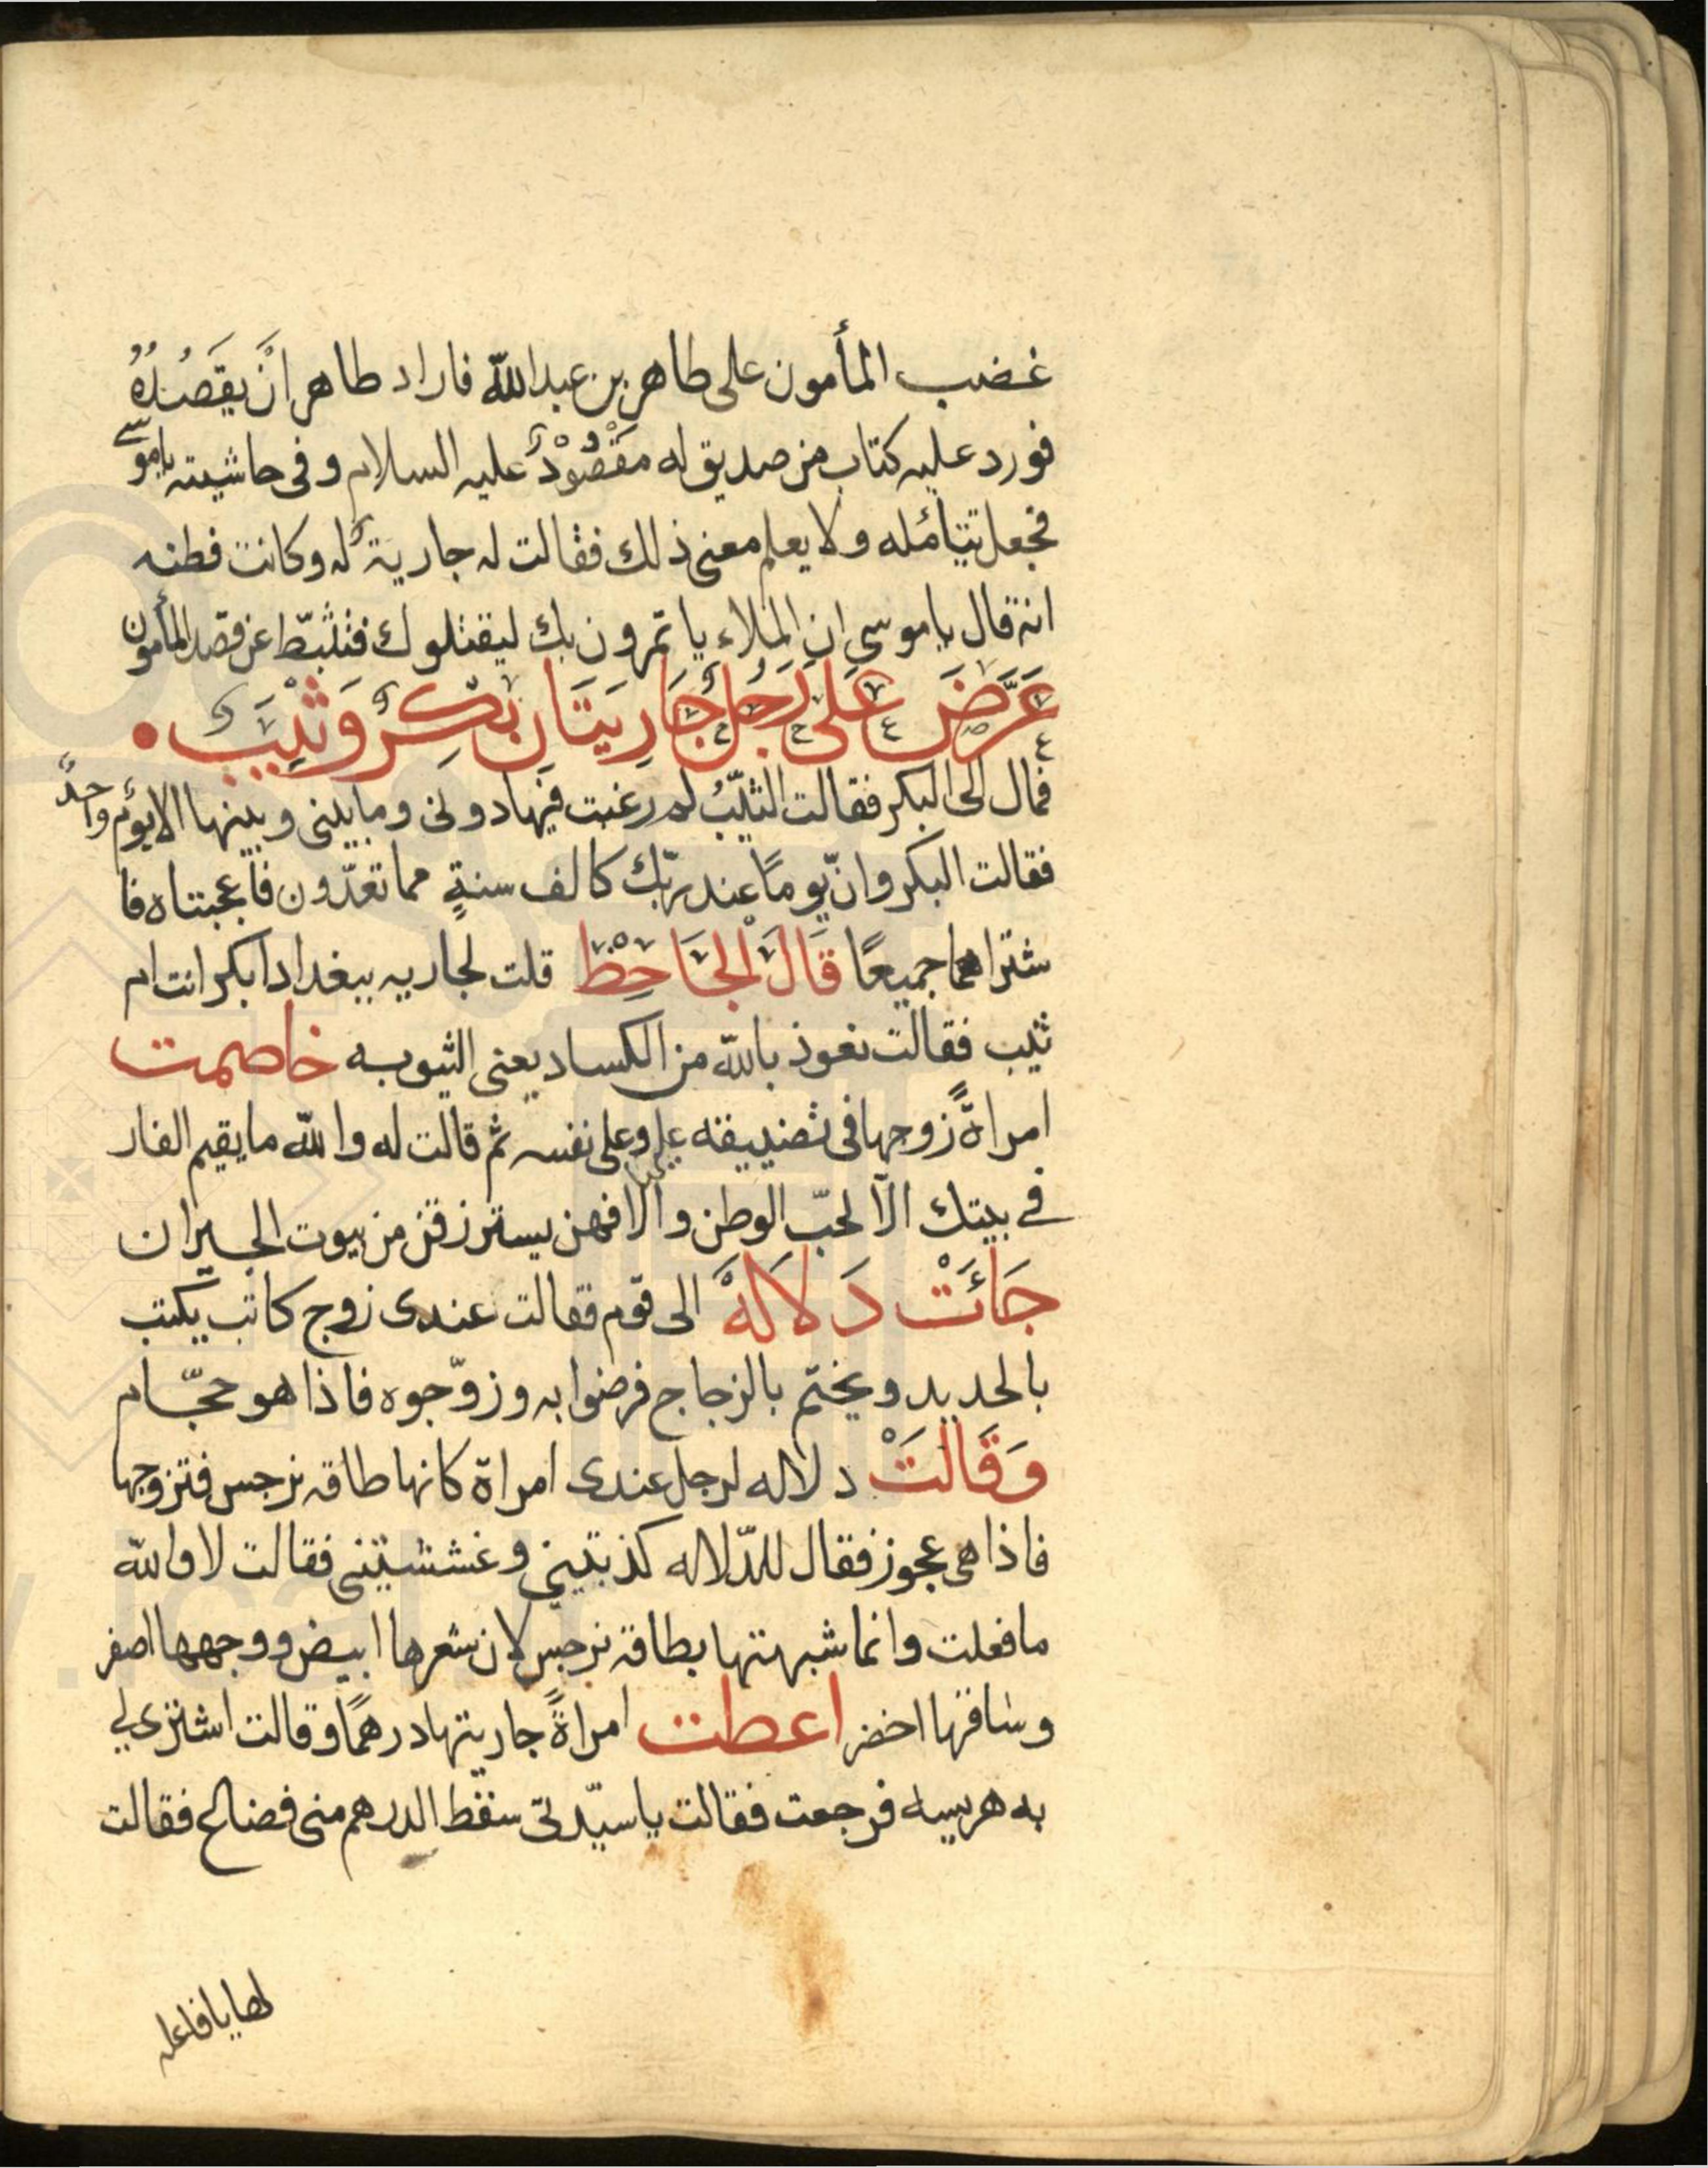 غضب المأمون على طاهر بن عبدالله فاراد طاهر انَ يقَصُدُهُ
فورد عليه كتاب من صديق له مَقْصُوْدٌ عليه السلام وفى حاشيته ياموسى
فجعل يتأمله ولا يعلم معنى ذلك فقالت له جاريةٌ له وكانت فطنه
انه قال ياموسى ان الملاء ياتمرون بك ليقتلوك فتثبّط عن قصد المأمون
عَرَّضَ عَلَى رَجُلٍ جَارِيَتَانِ بِكْرٌ وَثَيِّبٌ •
فمال الى البكر فقالت الثيّبُ له رغبت فيها دونى وما بينى وبينها الا يومٌ واحدٌ
فقالت البكر وانّ يومًا عند ربّك كالف سنةٍ مما تعدّون فاعجبتاه فا
شتراهما جميعًا قَالَ الْجَاحِظْ قلت لجاريه ببغداد ابكر انت ام
ثيب فقالت نعوذ بالله من الكساد يعنى الثيوبه خاصمت
امراةً زوجها فى تضييقه عليها وعلى نفسه ثم قالت له والله ما يقيم الفار
فى بيتك الّا لحبّ الوطن والا فهن يسترزقن من بيوت الجيران
جَائَتْ دَلَالَهٌ الى قوم فقالت عندى زوج كاتب يكتب
بالحديد ويختم بالزجاج فرضوا به وزوّجوه فاذا هو حجّام
وَقَالَتْ دلاله لرجل عندى امراة كانها طاقه نرجس فتزوجها
فاذا هى عجوز فقال للدّلاله كذبتينى وغششتينى فقالت لا والله
ما فعلت وانما شبهتها بطاقه نرجس لان شعرها ابيض ووجهها اصفر
وساقها اخضر اعطت امراةً جاريتها درهمًا وقالت اشترى لى
به هريسه فرجعت فقالت ياسيّدتى سقط الدرهم منى فضاع فقالت
لها يا فاعله